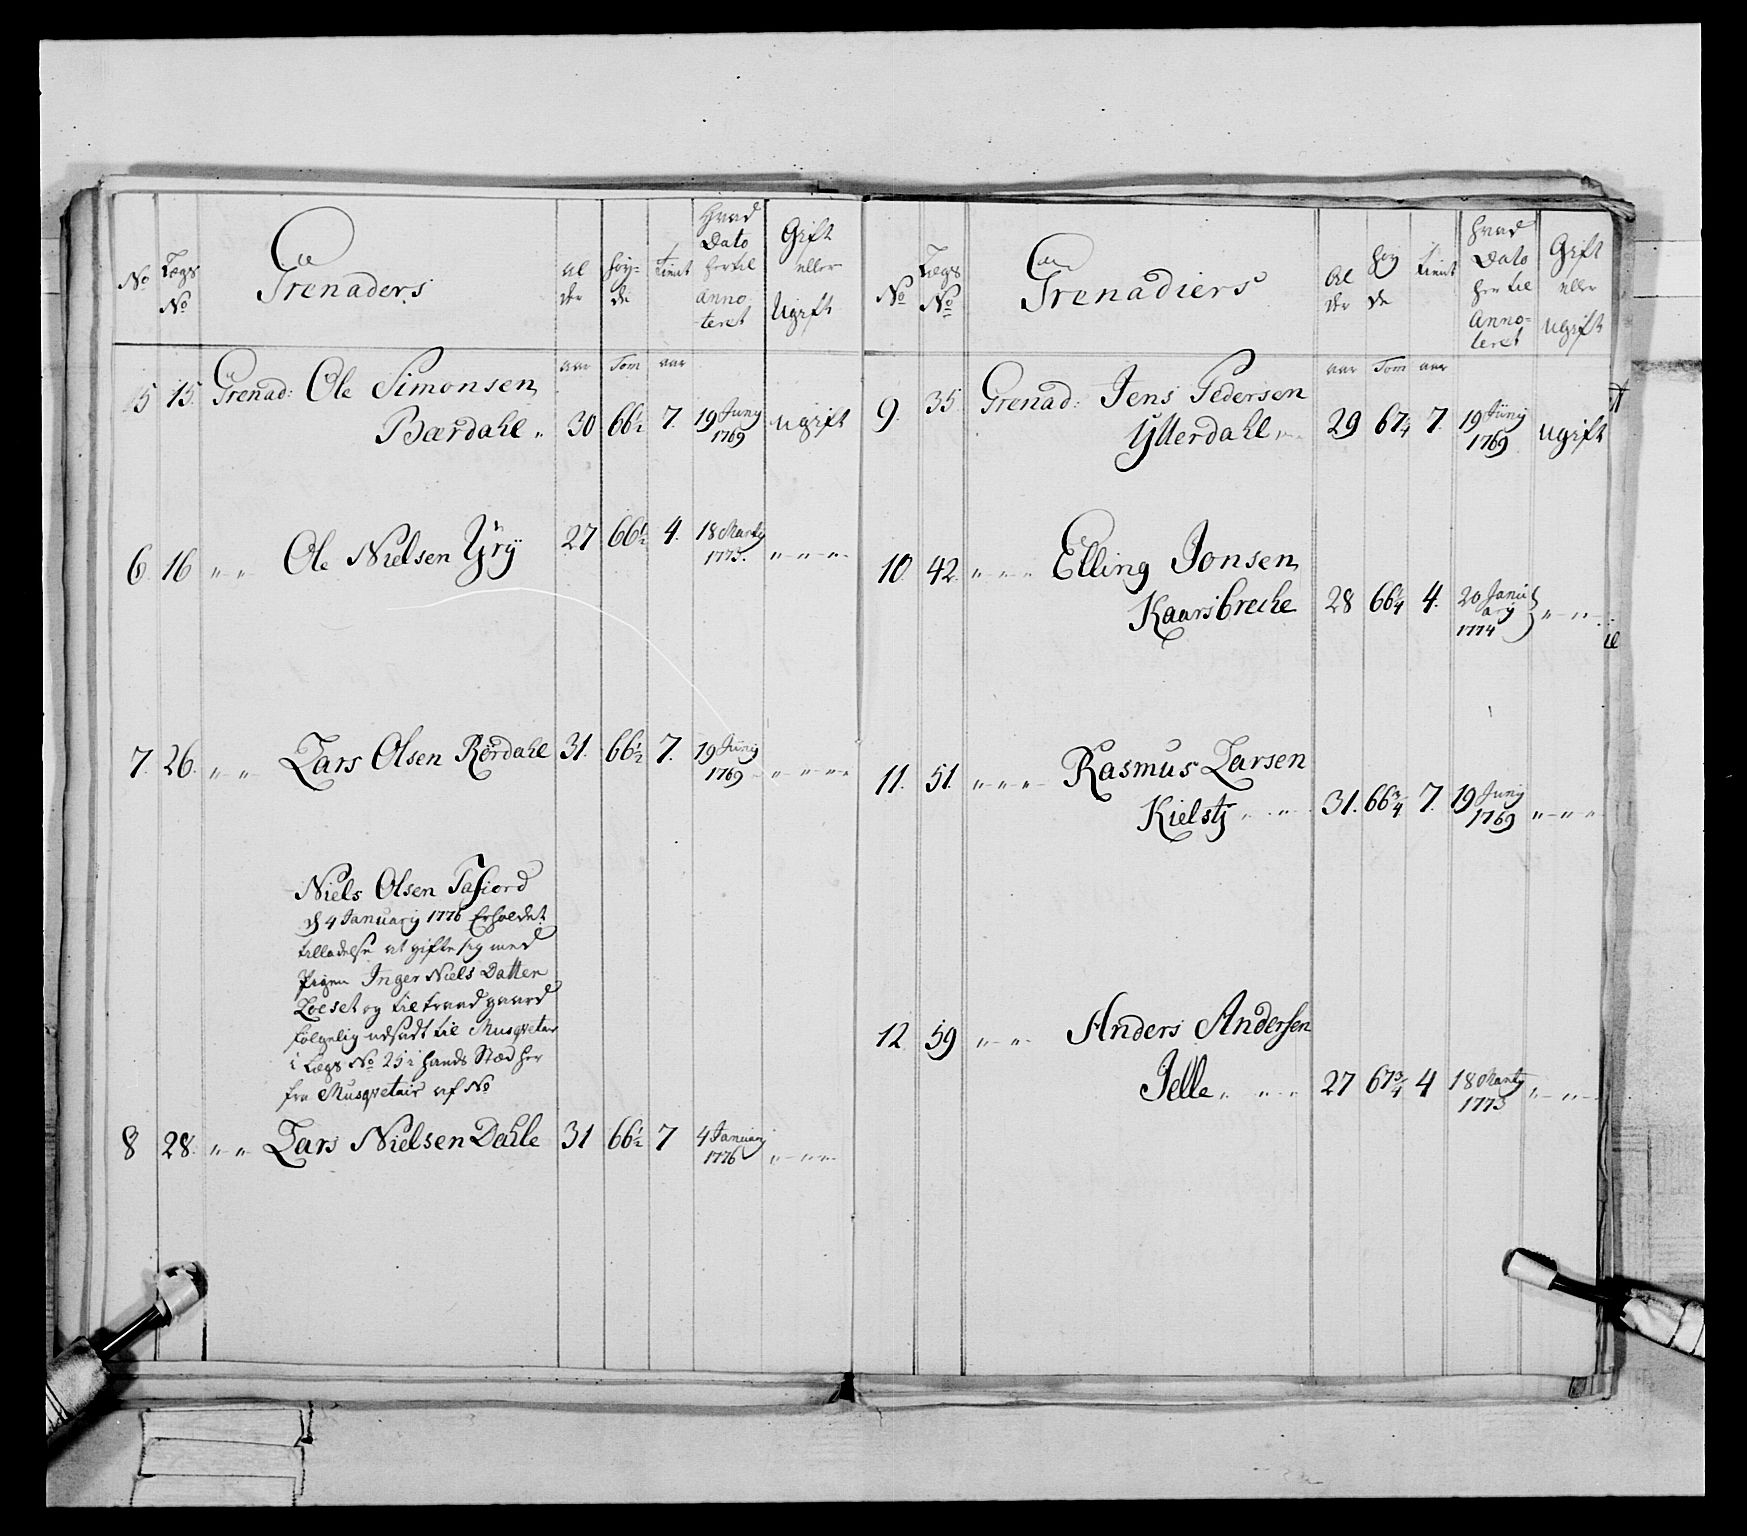 No Lægs No Grenaders Al der Høy= de tient Hvad Dato her til Anno teret Gift eller Ugift
aar Tom aar
5 15. Grenad: Ole Simonsen
Bærdahl „ 30 66½ 7. 19 Juny 1769 ugift
6. 16 „ „ Ole Nielsen Yrij 27 66½ 4. 18 Martij 1773. „ „ „
7. 26. „ „ Lars Olsen Rørdahl 31. 66½ 7. 19 Junij 1769 „ „ „
Niels Olsen Tafiord
d 4 January 1776 Erholdet
tilladelse at gifte sig med
Pigen Inger Niels Datter
Løeset og til traad gaard
følgelig udsadt til Musqvetair
i Lægs No 25 i hands Stæd her
fra Musqvetair af No
8 28. „ „ Lars Nielsen Dahle 31 66½ 7 4 January 1776 „ „ „
No Lægs No Grenadiers Al der høy de tient Hvad Dato her til Anno= teret Gift eller Ugift
aar Tom aar
9. 35 Grenad: Jens Pedersen
Ytterdahl „ 29 67¼ 7. 19 Junij 1769 ugift
10 42. „ „ „ Elling Jonsen
Kaarsbreche 28 66¼ 4. 20 Janu ary 1774 „ „
11. 51. „ „ „ Rasmus Larsen
Kielstj „ „ 31. 66¾ 7. 19 Juny 1769 „ „ „
12. 59 „ „ Anders Andersen
Jelle „ „ „ 27 67¾ 4 18 Martij 1773 „ „